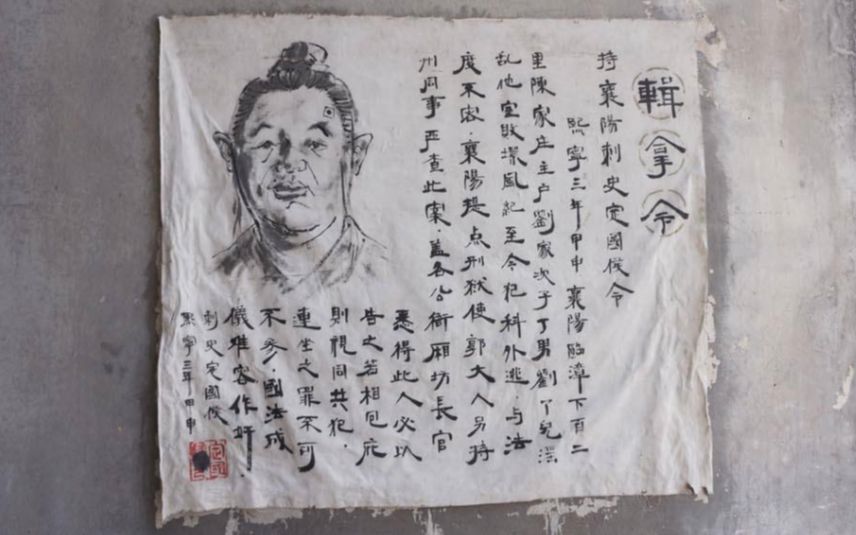 輯拿令
持襄陽刺史定國侯令
熙寧三年甲申襄陽臨漳下百二
里陳家庄主户劉家次子丁男劉丫兒滛
乱他室敗壞風紀至令犯科外逃·与法
度不容·襄陽提点刑狱使郭大人另持
州同事严查此案·盖各公衙厢坊長官
悉得此人必以
告之若相包庇
則視同共犯·
連坐之罪不可
不参·國法成
儀难容作奸·
刺史定國侯
熙寧三年甲申